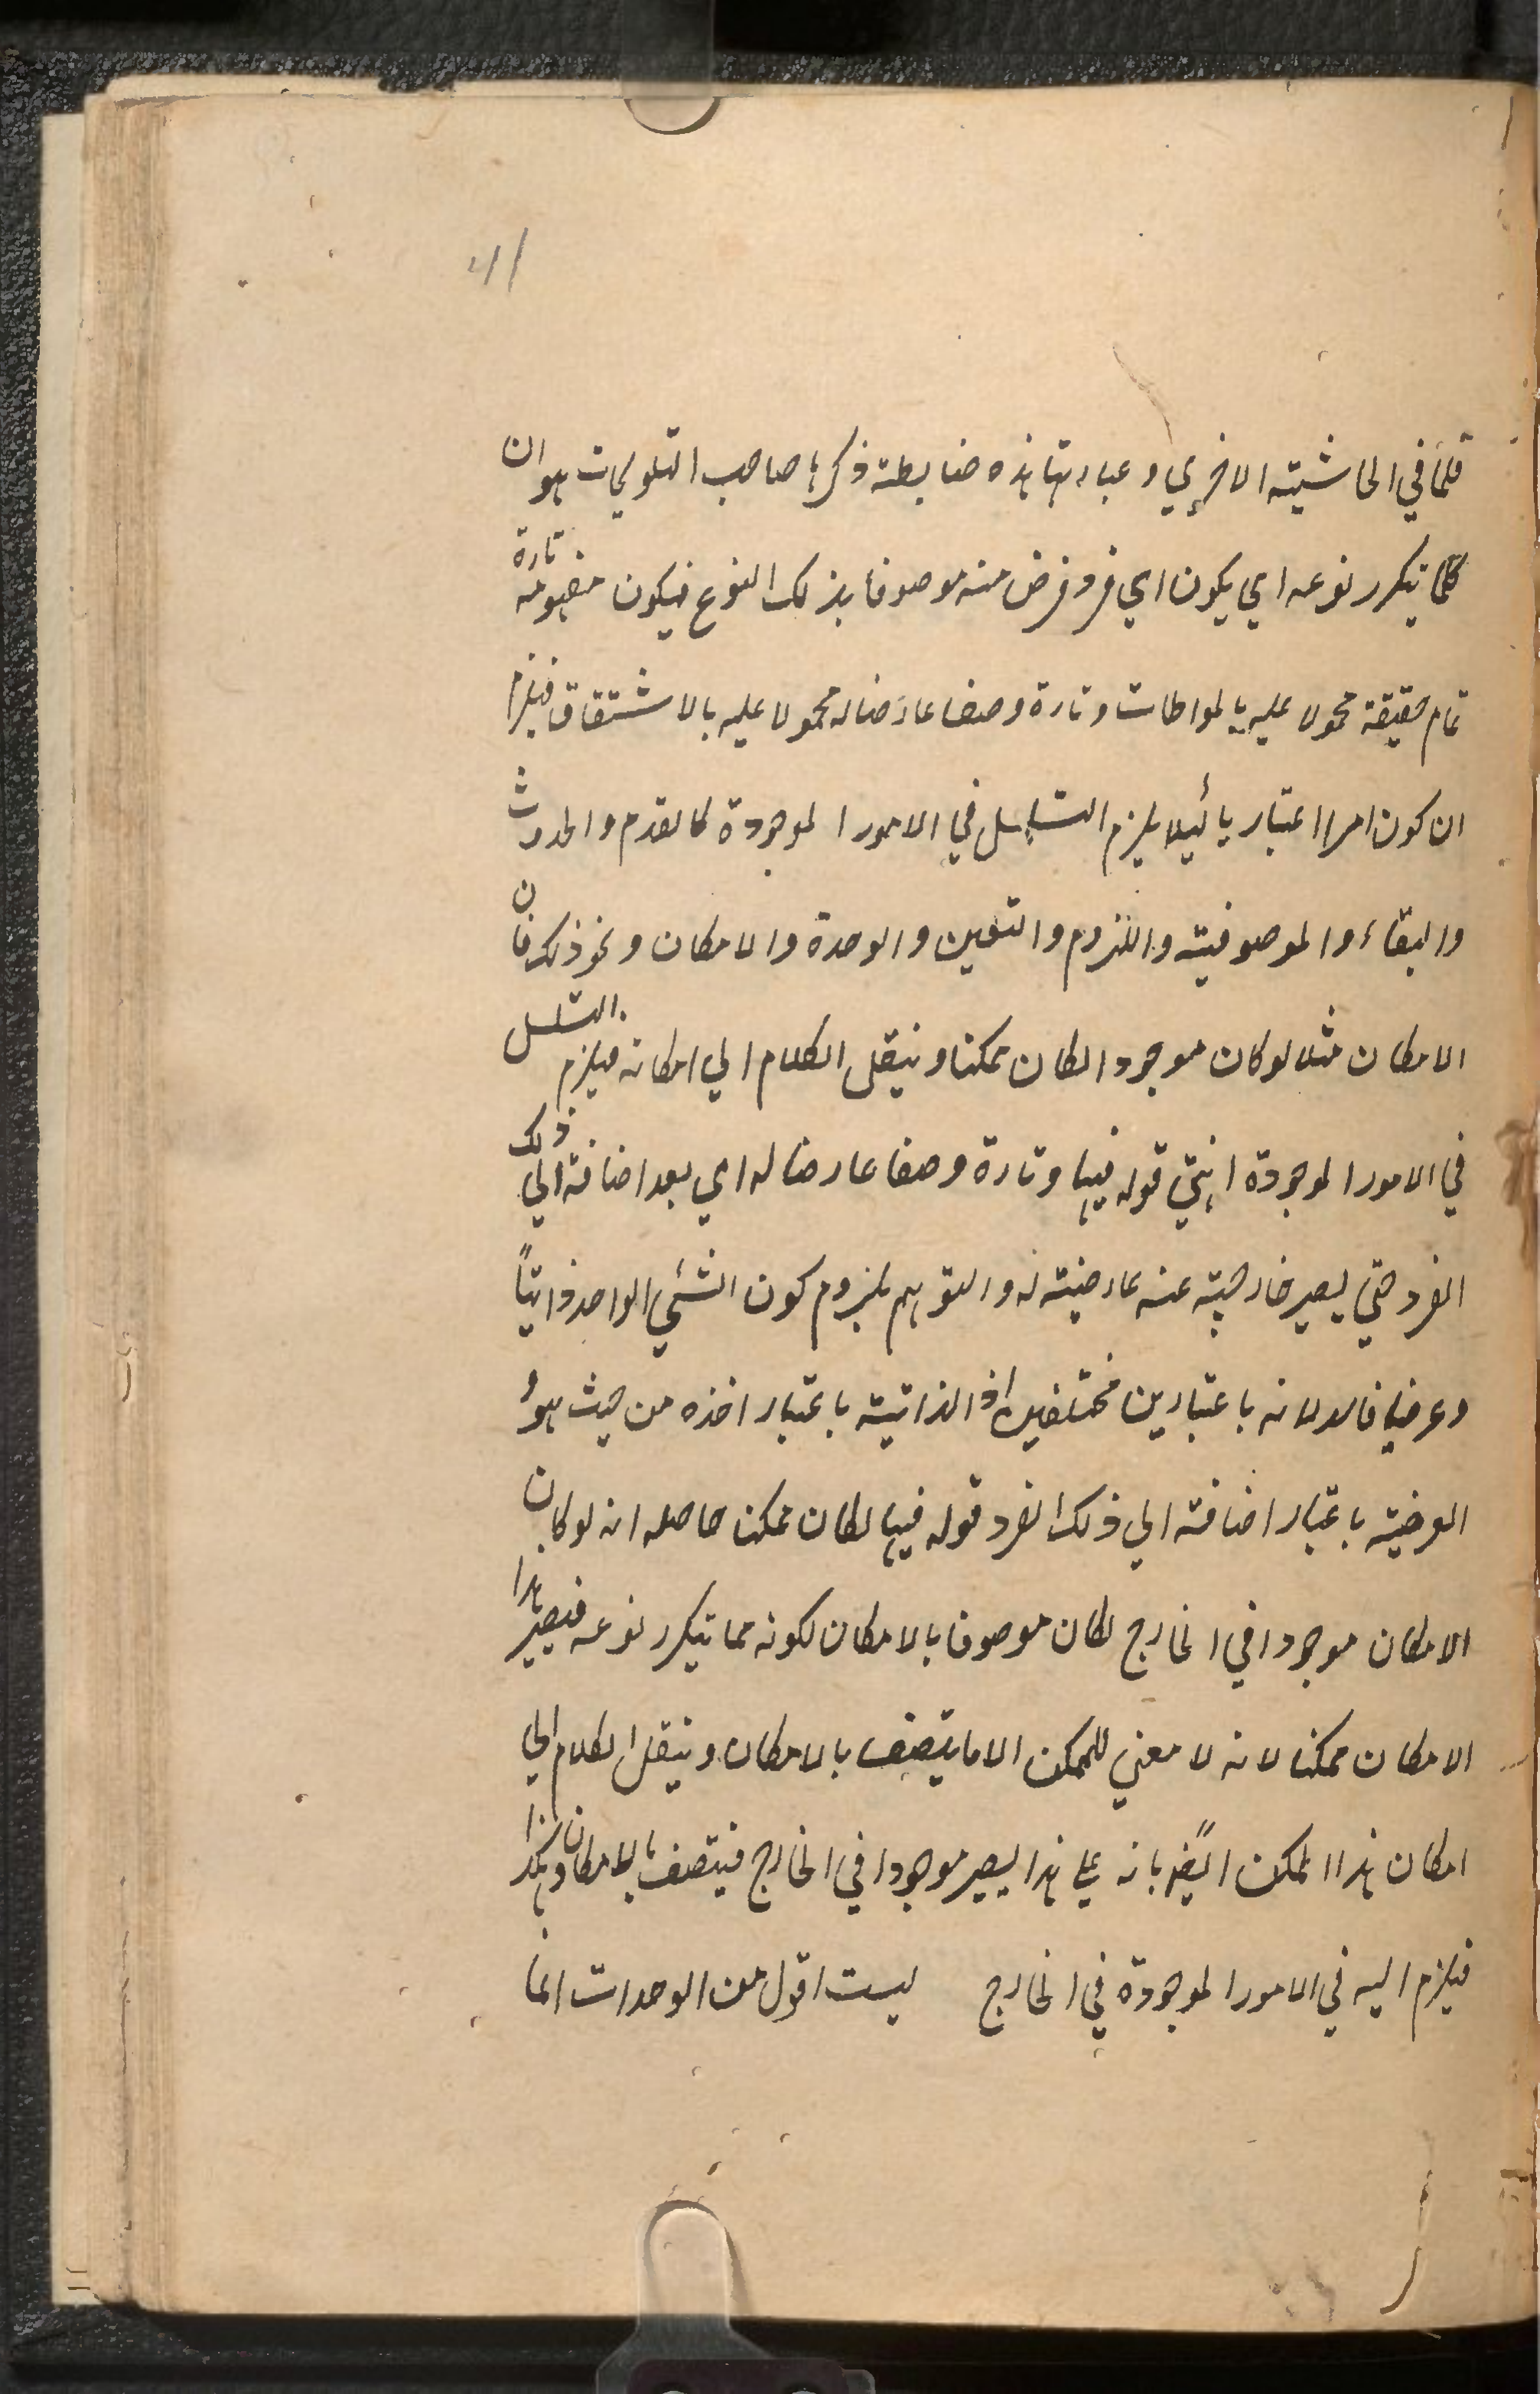 41
قلنا في الحاشية الاخري وعبارتها هذه ضابطة ذكرها صاحب التلويحات هو ان
كلما تكرر نوعه اي يكون اي فرد فرض منه موصوفا بذلك النوع فيكون مفهومه تارة
تمام حقيقة محمولا عليه بالمواطات وتارة وصفا عارضا له محمولا عليه بالاشتقاق فيلزم
ان كون امرا اعتباريا لئيلا يلزم التسلسل في الامور الموجودة كالقدم والحدوث
والبقاء والموصوفية واللزوم والتعين والوحدة والامكان ونحو ذلك فان
الامكان مثلا لو كان موجودا لكان ممكنا وينقل الكلام الي امكانه فيلزم التسلسل
في الامور الموجودة انتهي قوله فيها وتارة وصفا عارضا له اي بعد اضافة الي ذلك
الفرد حتي يصير خارجية عنه عارضية له والتوهم بلزوم كون الشئي الواحد ذاتياً
وعرضيا فاسد لانه باعتبارين مختلفين اذ الذاتية باعتبار اخذه من حيث هو و
العرضية باعتبار اضافته الي ذلك الفرد قوله فيها لكان ممكنا حاصله انه لو كان
الامكان موجودا في الخارج لكان موصوفا بالامكان لكونه مما تيكرر نوعه فيصير هذا
الامكان ممكنا لانه لا معني للممكن الا ما يتصف بالامكان وينقل الكلام الي
امكان هذا الممكن ايضً بانه علي هذا يصير موجودا في الخارج فيتصف بالامكان وهكذا
فيلزم اليه في الامور الموجودة في الخارج ليست اقول من الوحدات انما